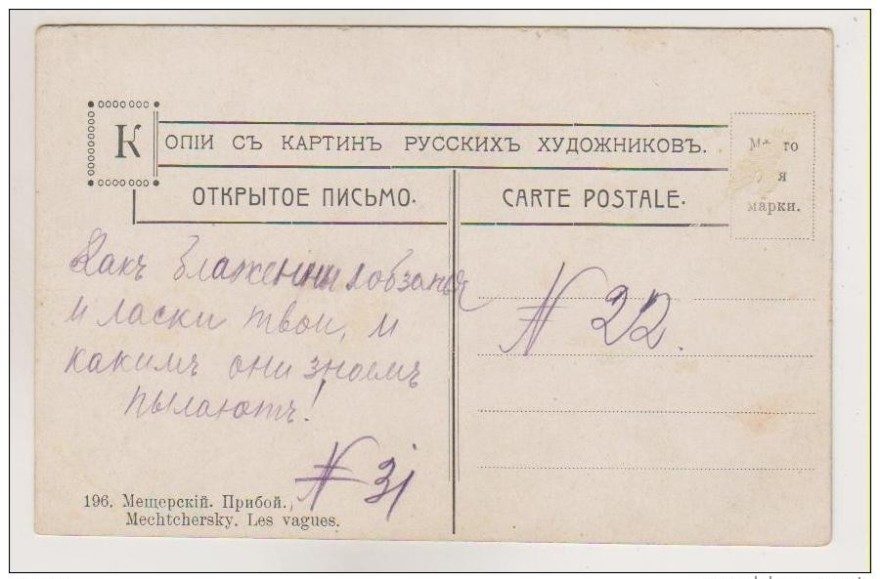 КОПІИ СЪ КАРТИНЪ РУССКИХЪ ХУДОЖНИКОВЪ.
ОТКРЫТОЕ ПИСЬМО.
CARTE POSTALE.
марки.
Какъ блаженны лобзанья
и ласки твои, и
какимъ они зноемъ
пылаютъ!
N 31
N 22.
196. Мещерскій. Прибой.
Mechtchersky. Les vagues.